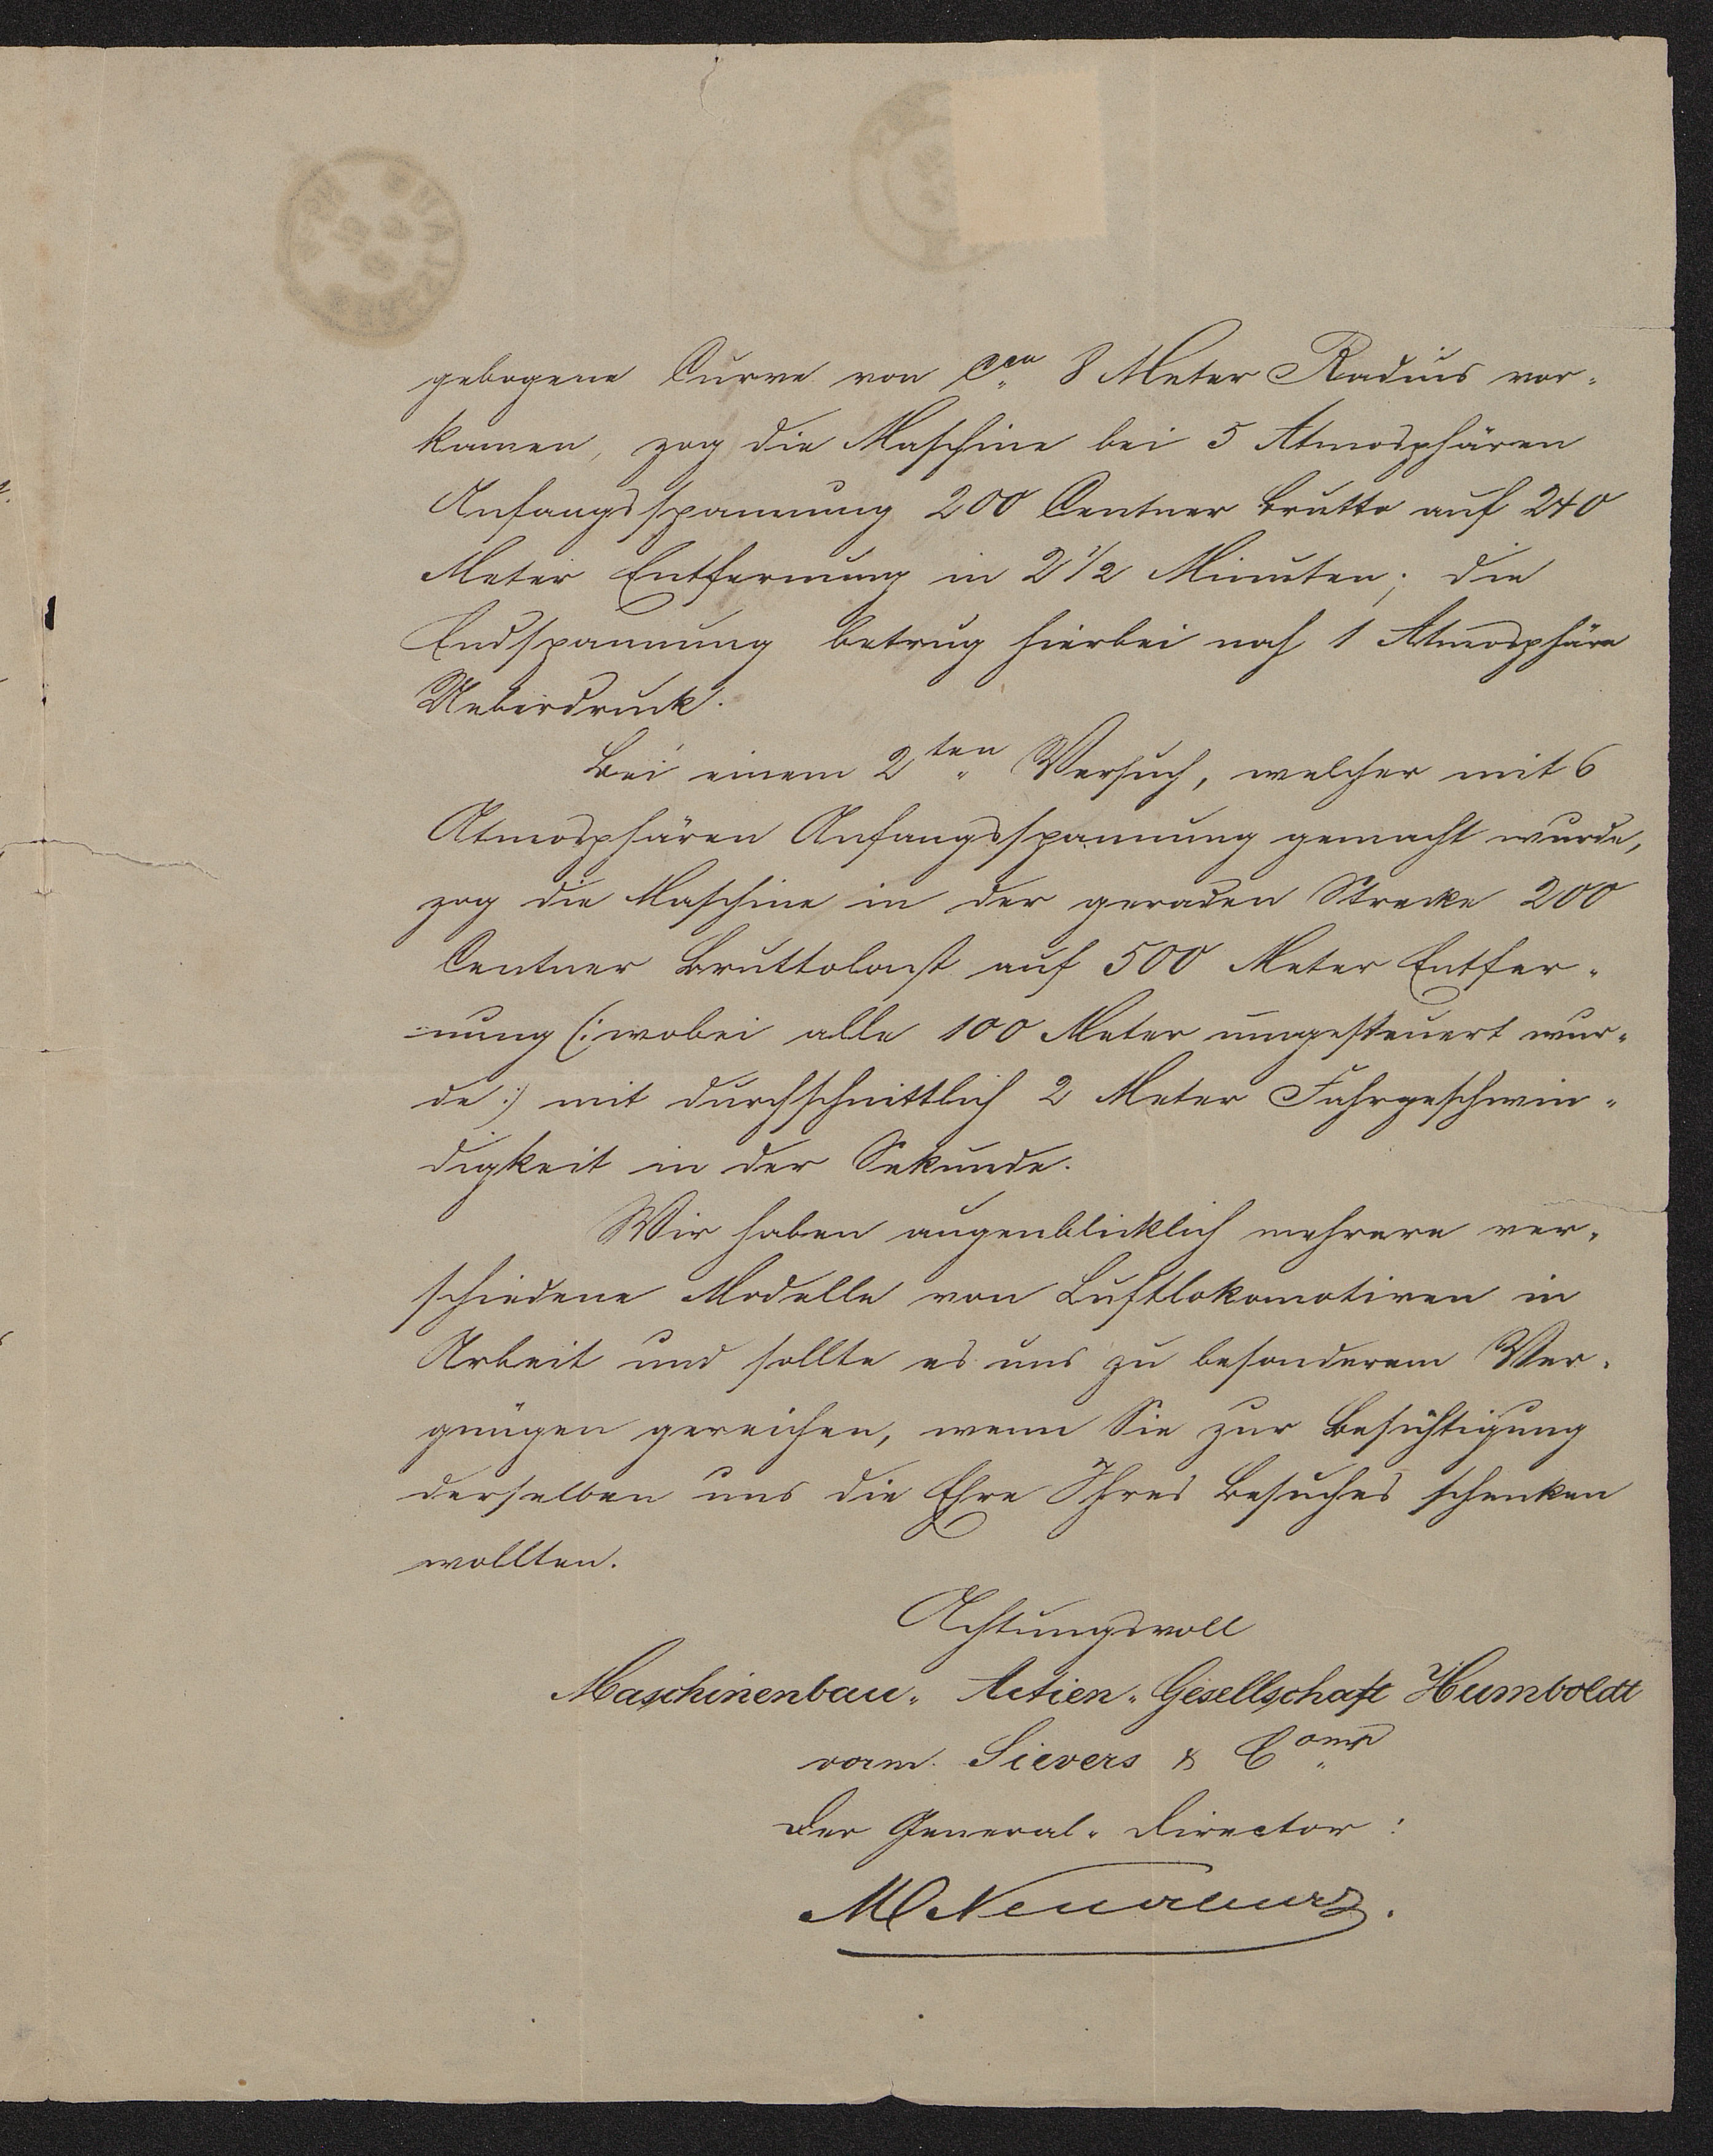 gebogene Curve von Cca 8 Meter Radius vor-
kamen, zog die Maschine bei 5 Atmosphären
Anfangsspannung 200 Centner brutto auf 240
Meter Entfernung in 2 1/2 Minuten; die
Endspannung betrug hierbei noch 1 Atmosphäre
Ueberdruck.
Bei einem 2ten Versuch, welcher mit 6
Atmosphären Anfangsspannung gemacht wurde,
zog die Maschine in der geraden Strecke 200
Centner Bruttolast auf 500 Meter Entfer-
nung (: wobei alle 100 Meter umgesteuert wur-
de :) mit durchschnittlich 2 Meter Fahrgeschwin-
digkeit in der Sekunde.
Wir haben augenblicklich mehrere ver-
schiedene Modelle von Luftlokomotiven in
Arbeit und sollte es uns zu besonderem Ver-
gnügen gereichen, wenn Sie zur Besichtigung
derselben uns die Ehre Ihres Besuches schenken
wollten.
Achtungsvoll
Maschinenbau- Actien- Gesellschaft Humboldt
vorm. Sievers & Comp
Der General- Director: